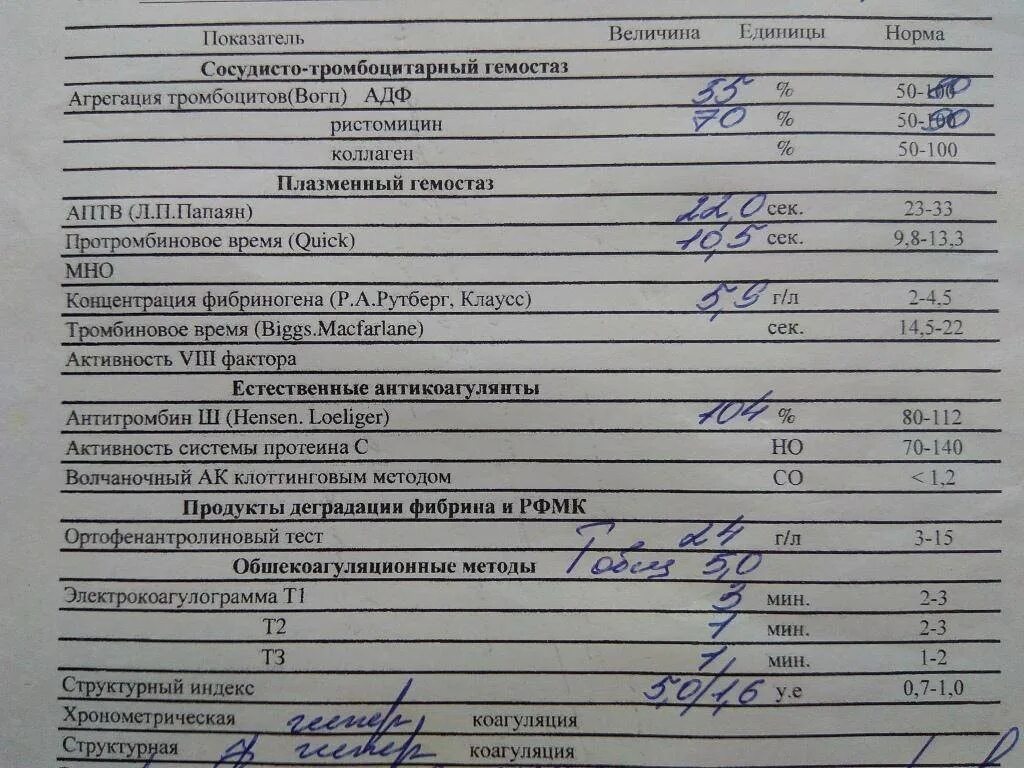 Показатель Величина Единицы Норма
Сосудисто-тромбоцитарный гемостаз
Агрегация тромбоцитов(Вогп) АДФ 55 % 50-100
ристомицин 70 % 50-100
коллаген % 50-100
Плазменный гемостаз
АПТВ (Л.П.Папаян) 22,0 сек. 23-33
Протромбиновое время (Quick) 10,5 сек. 9,8-13,3
МНО
Концентрация фибриногена (Р.А.Рутберг, Клаусс) г/л 2-4,5
Тромбиновое время (Biggs.Macfarlane) сек. 14,5-22
Активность VIII фактора
Естественные антикоагулянты
Антитромбин Ш (Hensen. Loeliger) 104 % 80-112
Активность системы протеина С НО 70-140
Волчаночный АК клоттинговым методом СО < 1,2
Продукты деградации фибрина и РФМК
Ортофенантролиновый тест 24 г/л 3-15
Обшекоагуляционные методы Тобщ 5,0
Электрокоагулограмма Т1 3 мин. 2-3
Т2 1 мин. 2-3
Т3 1 мин. 1-2
Структурный индекс 5,0/1,6 у.е 0,7-1,0
Хронометрическая гипер коагуляция
Структурная гипер коагуляция